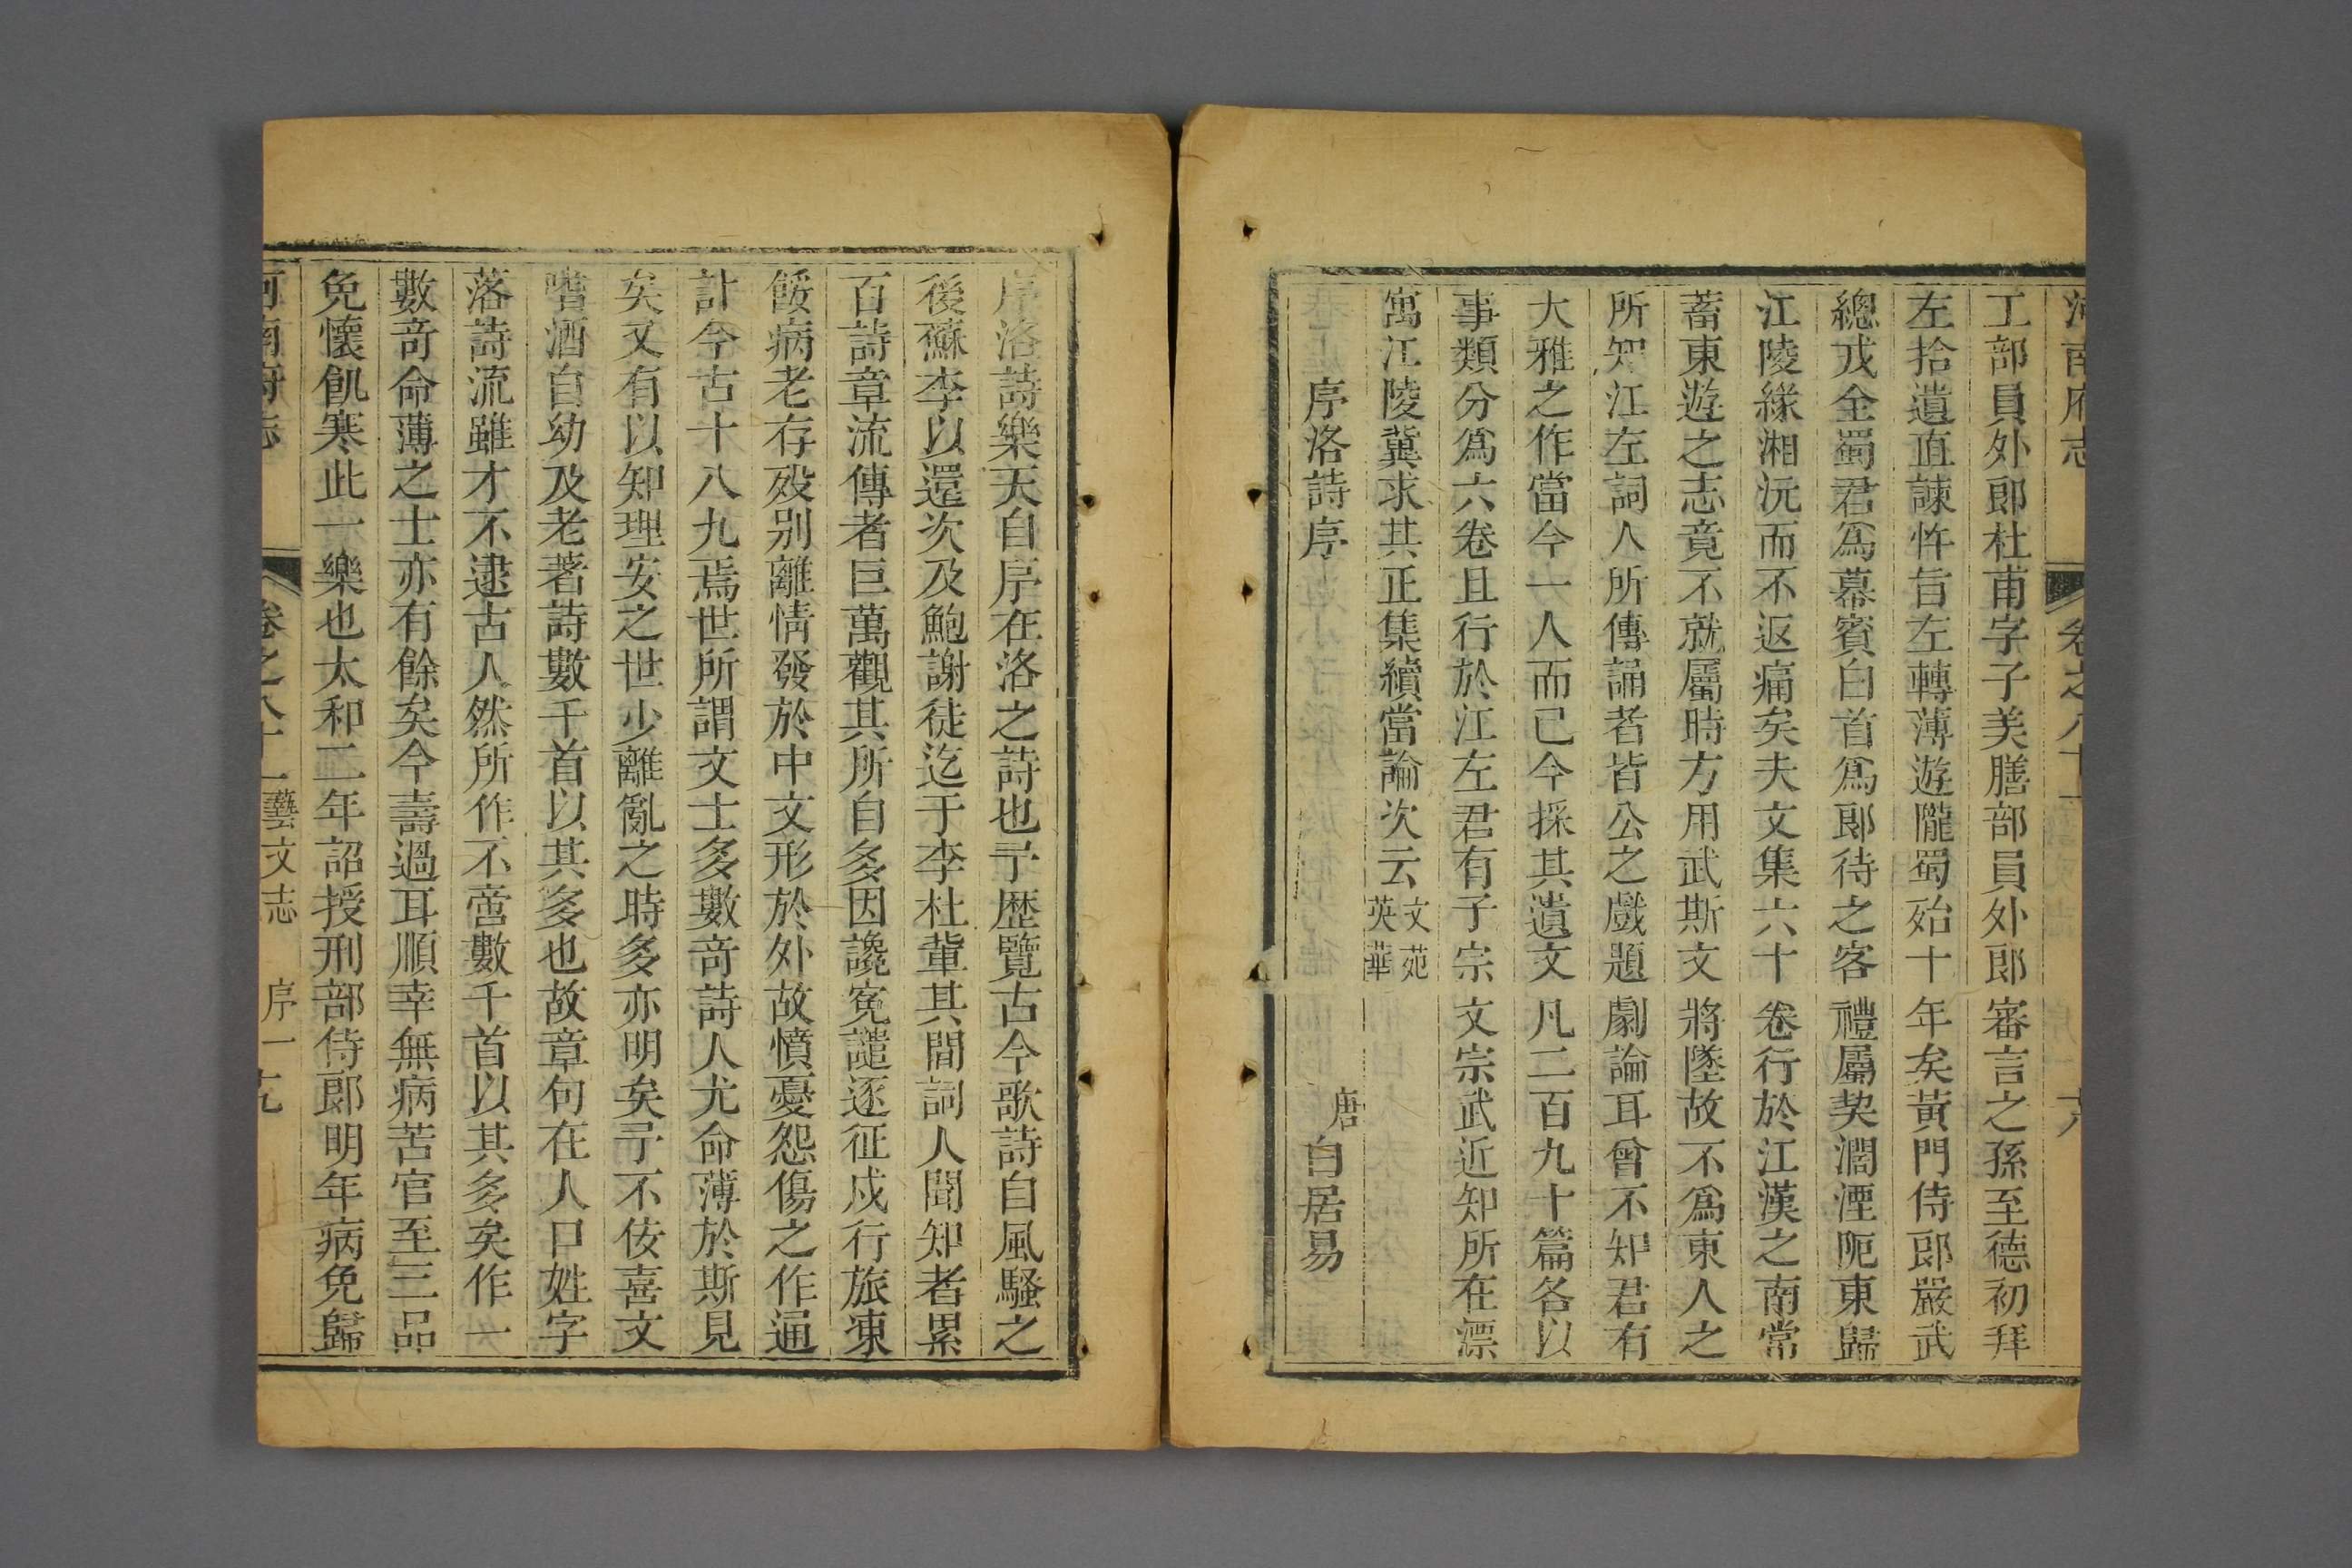 工部員外郎杜甫字子美膳部員外郎審言之孫至德初拜
左拾遺直諫忤旨左轉薄遊隴蜀殆十年矣黃門侍郎嚴武
總戎全蜀君爲幕賓白首爲郎待之客禮屬契濶湮阨東歸
江陵緣湘沅而不返痛矣夫文集六十卷行於江漢之南常
蓄東遊之志竟不就屬時方用武斯文將墜故不爲東人之
所知江左詞人所傳誦者皆公之戲題劇論耳曾不知君有
大雅之作當今一人而已今採其遺文凡二百九十篇各以
事類分爲六卷且行於江左君有子宗文宗武近知所在漂
寓江陵冀求其正集續當論次云文苑英華
序洛詩序 唐白居易
序洛詩樂天自序在洛之詩也予歷覽古今歌詩自風騷之
後蘇李以還次及鮑謝徒迄于李杜輩其間詞人聞知者累
百詩章流傳者巨萬觀其所自多因讒冤譴逐征戍行旅凍
餒病老存歿别離情發於中文形於外故憤憂怨傷之作通
計今古十八九焉世所謂文士多數奇詩人尤命薄於斯見
矣又有以知理安之世少離亂之時多亦明矣予不佞喜文
嗜酒自幼及老著詩數千首以其多也故章句在人口姓字
落詩流雖才不逮古人然所作不啻數千首以其多矣作一
數奇命薄之士亦有餘矣今壽過耳順幸無病苦官至三品
免懷飢寒此一樂也太和二年詔授刑部侍郎明年病免歸
河南府志 卷之八十一藝文志 序一 十九